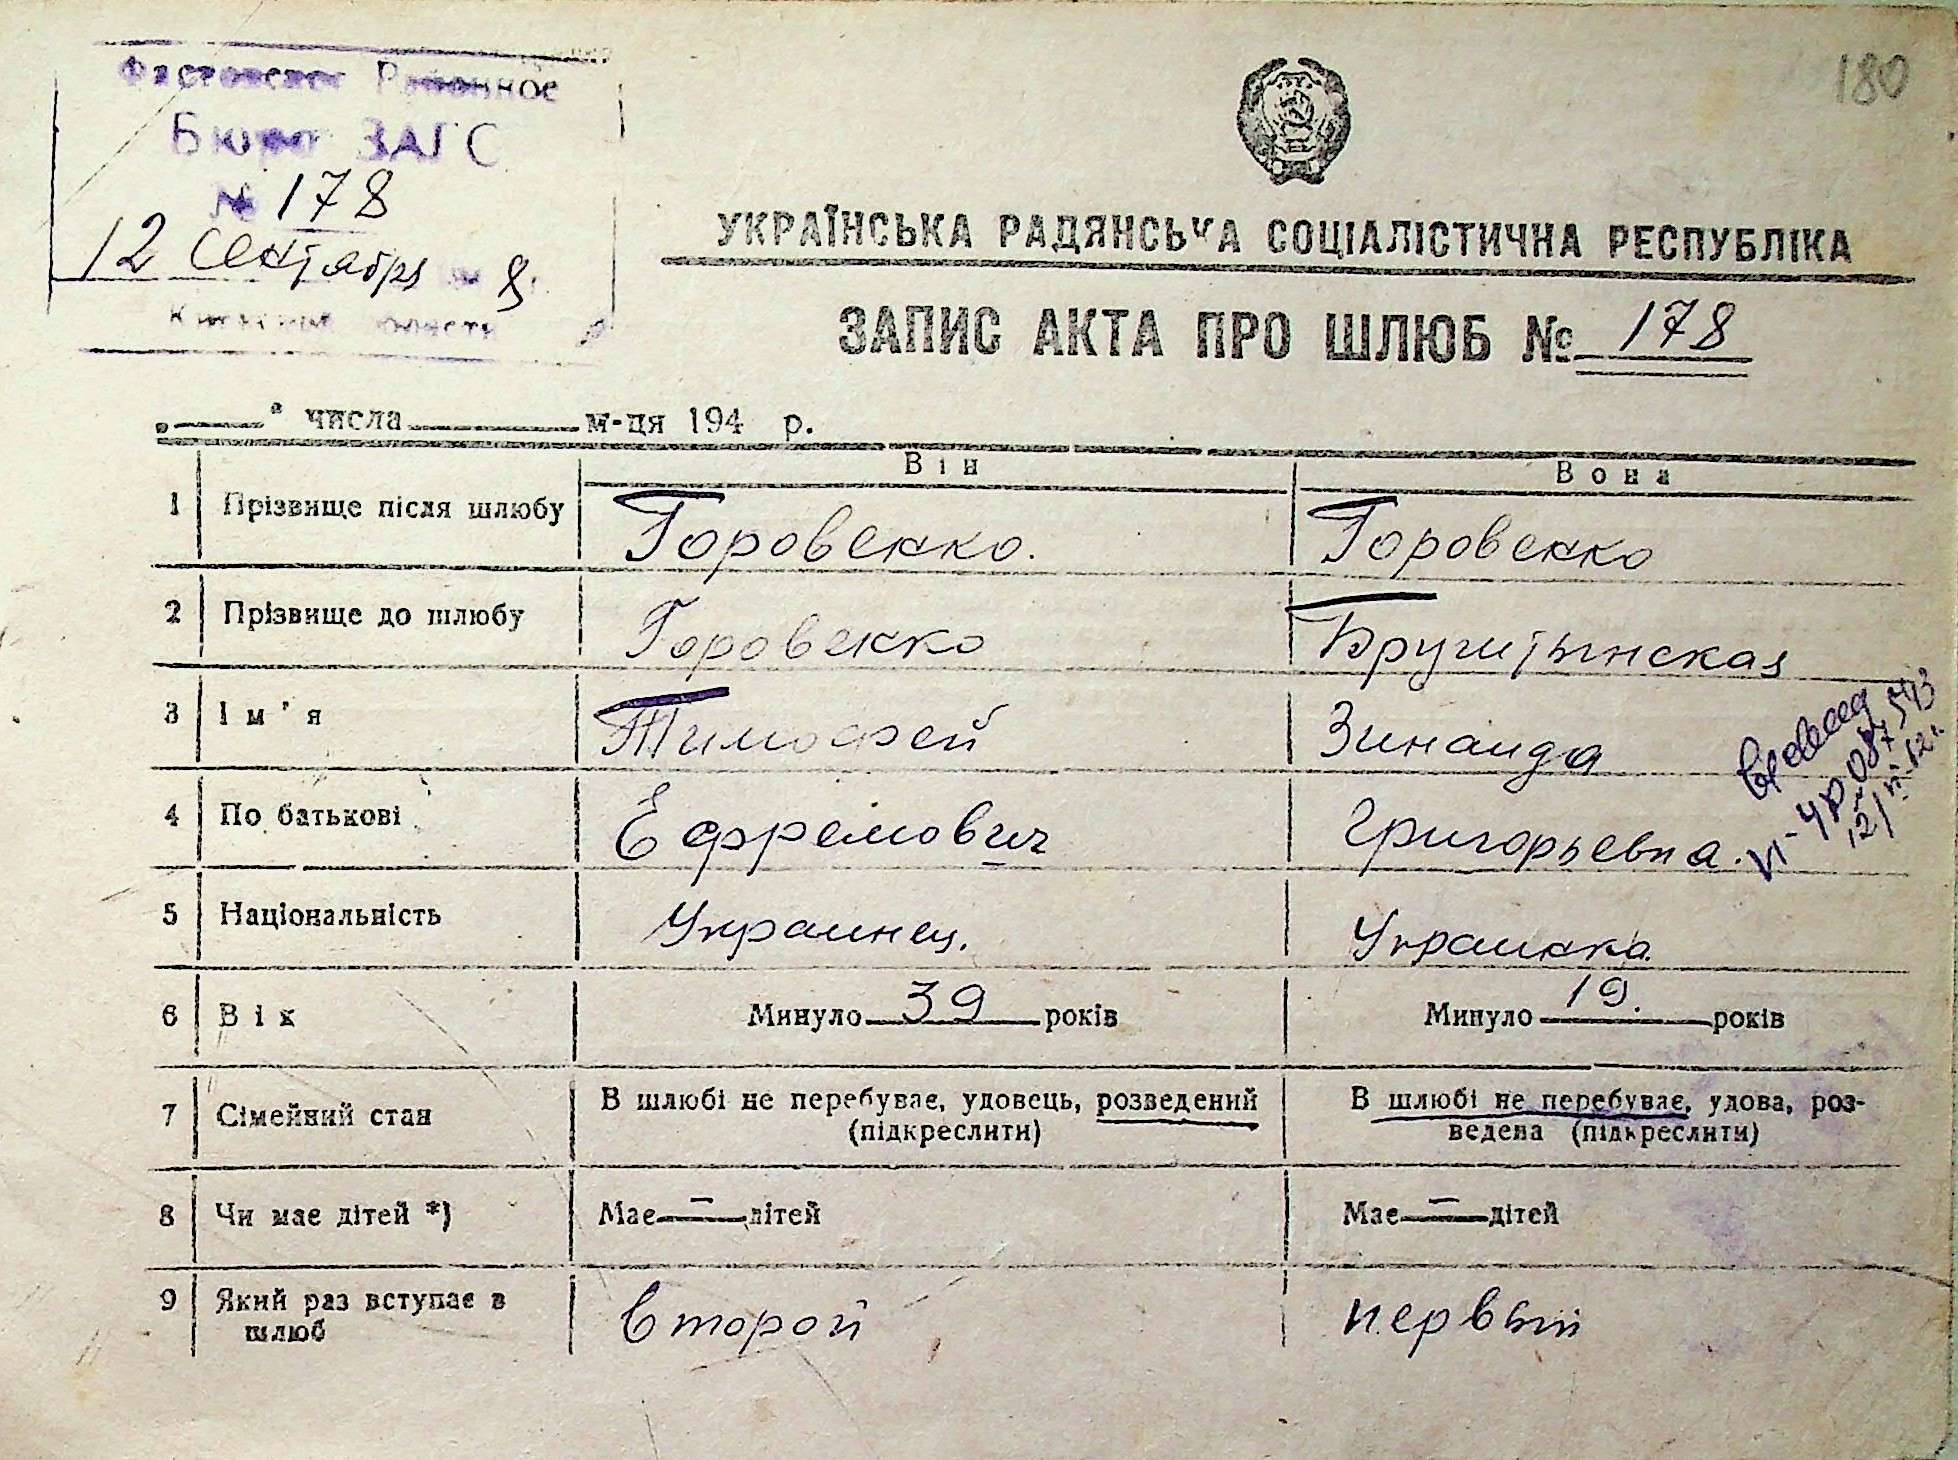 180
Фастовское Районное
Бюро ЗАГС
№ 178
12 Сентября 8
Киевской области
УКРАЇНСЬКА РАДЯНСЬКА СОЦІАЛІСТИЧНА РЕСПУБЛІКА
ЗАПИС АКТА ПРО ШЛЮБ № 178
„ “ числа м-ця 194 р.
Він Вона
1 Прізвище після шлюбу Горовенко. Горовенко
2 Прізвище до шлюбу Горовенко
3 Ім'я Тимофей Зинаида
4 По батькові Ефремович Григорьевна.
VI-ЧР 087543
5 Національність Украинец. Украинка.
6 Вік Минуло 39 років Минуло 19. років
7 Сімейний стан В шлюбі не перебуває, удовець, розведений В шлюбі не перебуває, удова, роз-
(підкреслити) ведена (підкреслити)
8 Чи має дітей *) Має — дітей Має — дітей
9 Який раз вступає в шлюб Второй первый